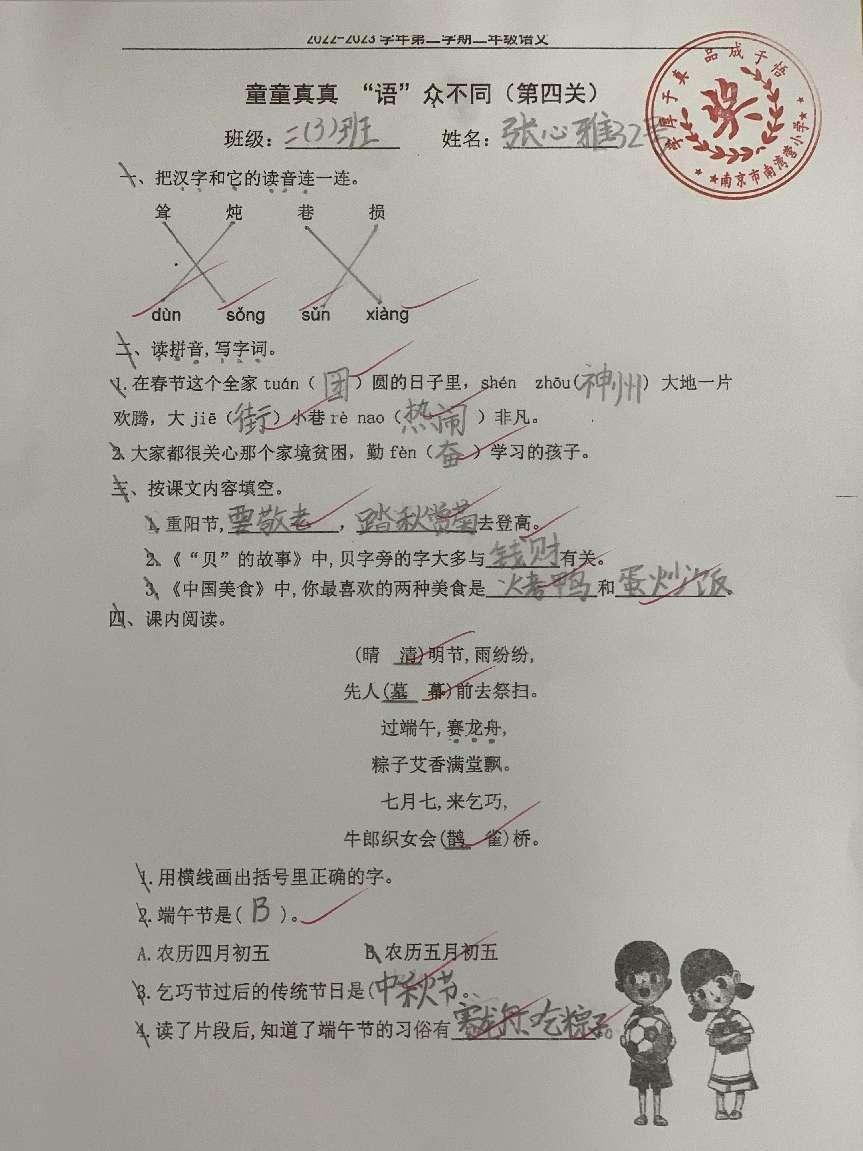 2022-2023 学年第二学期二年级语文
童童真真 “语”众不同（第四关）
班级：二(3)班 姓名：张心雅32号
品成于悟
南京市南湾营小学
一、把汉字和它的读音连一连。
耸 炖 巷 损
dùn sǒng sǔn xiàng
二、读拼音,写字词。
1.在春节这个全家 tuán（团）圆的日子里，shén zhōu(神州）大地一片
欢腾，大 jiē（街）小巷 rè nao（热闹）非凡。
2.大家都很关心那个家境贫困，勤 fèn（奋）学习的孩子。
三、按课文内容填空。
1.重阳节,要敬老，踏秋赏菊去登高。
2.《“贝”的故事》中,贝字旁的字大多与钱财有关。
3.《中国美食》中,你最喜欢的两种美食是烤鸭和蛋炒饭。
四、课内阅读。
(晴 清)明节,雨纷纷,
先人(墓 幕)前去祭扫。
过端午,赛龙舟,
粽子艾香满堂飘。
七月七,来乞巧,
牛郎织女会(鹊 雀)桥。
1.用横线画出括号里正确的字。
2.端午节是( B )。
A.农历四月初五 B.农历五月初五
3.乞巧节过后的传统节日是(中秋节。
4.读了片段后,知道了端午节的习俗有赛龙舟、吃粽子。